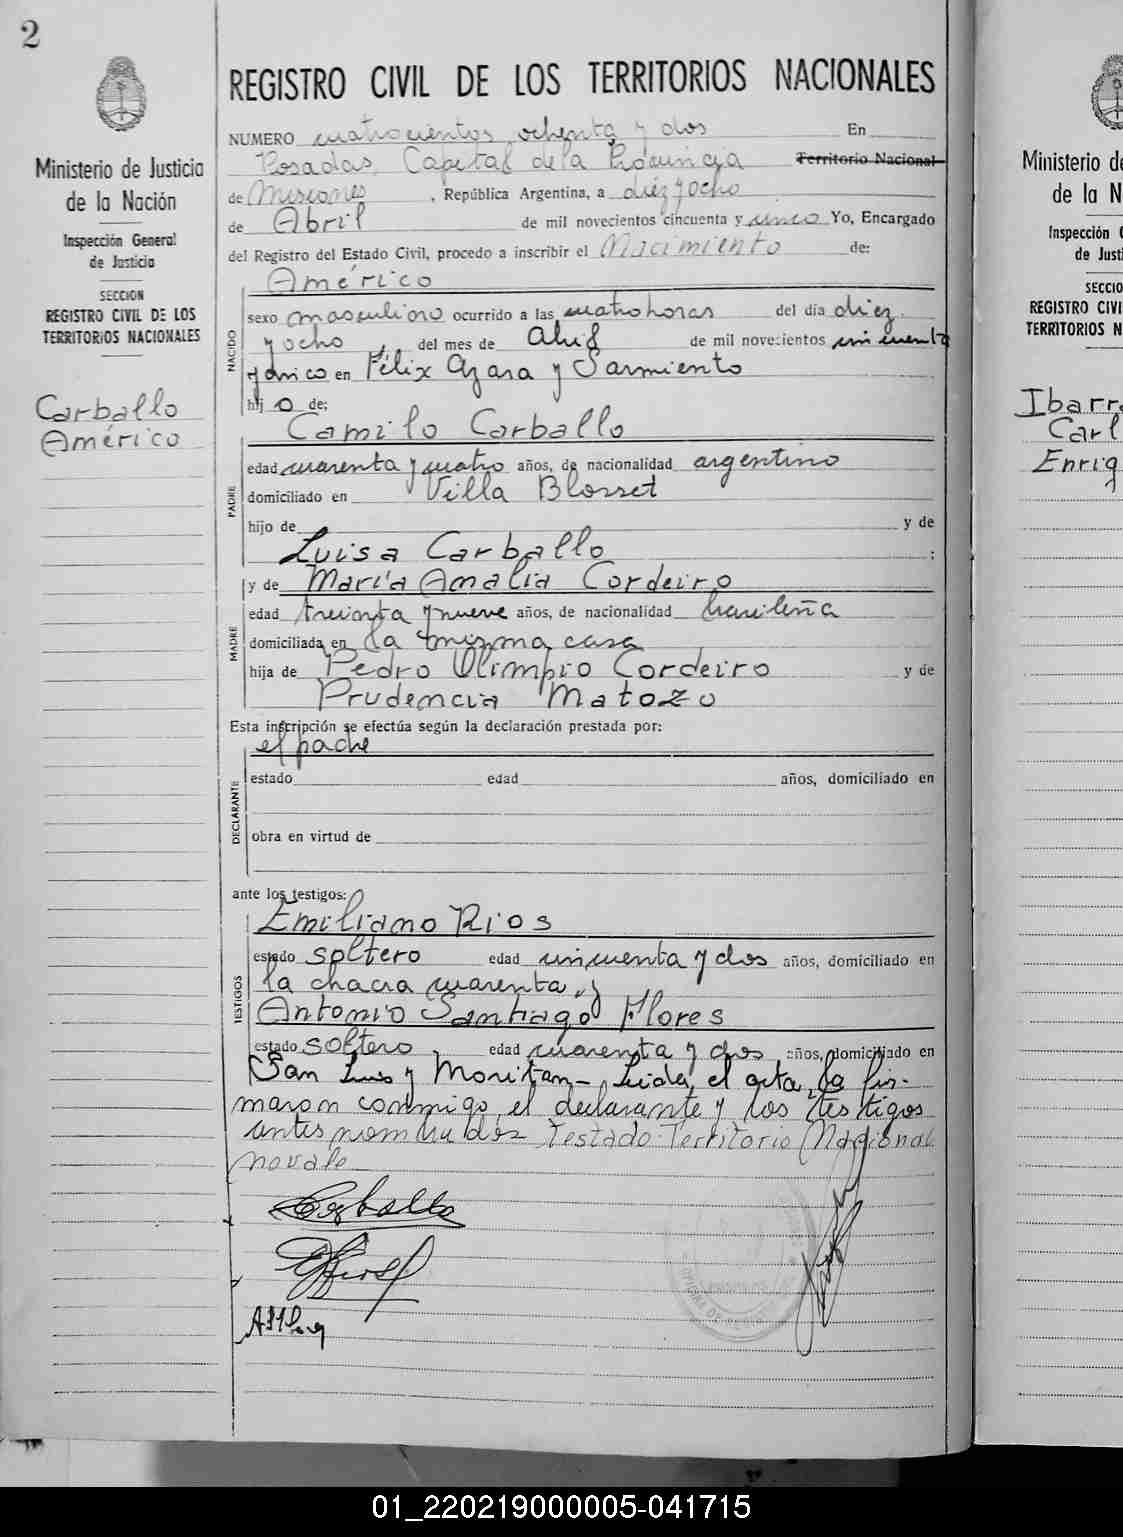 2
Ministerio de Justicia
de la Nación
Inspección General
de Justicia
SECCION
REGISTRO CIVIL DE LOS
TERRITORIOS NACIONALES
Carballo
Américo
REGISTRO CIVIL DE LOS TERRITORIOS NACIONALES
NUMERO cuatrocientos ochenta y dos En
Posadas, Capital de la Provincia Territorio Nacional
de Misiones, República Argentina, a diez y ocho
de Abril de mil novecientos cincuenta y unco Yo, Encargado
del Registro del Estado Civil, procedo a inscribir el Nacimiento de:
NACIDO
Américo
sexo masculino ocurrido a las cuatro horas del día diez
y ocho del mes de Abril de mil novecientos cincuenta
y cinco en Félix Azara y Sarmiento
hij o de:
PADRE
Camilo Carballo
edad cuarenta y cuatro años, de nacionalidad argentino
domiciliado en Villa Blosset
hijo de y de
Luisa Carballo :
MADRE
y de María Amalia Cordeiro
edad treinta y nueve años, de nacionalidad brasileña
domiciliada en la misma casa
hija de Pedro Olimpio Cordeiro y de
Prudencia Matozo
Esta inscripción se efectúa según la declaración prestada por:
el padre
DECLARANTE
estado edad años, domiciliado en
obra en virtud de
ante los testigos:
TESTIGOS
Emiliano Rios
estado soltero edad cincuenta y dos años, domiciliado en
la chacra cuarenta y
Antonio Santiago Flores
estado soltero edad cuarenta y dos años, domiciliado en
San Luis y Moritan - Leida el acta, la fir-
maron conmigo, el declarante y los testigos
antes nombrados Testado: Territorio Nacional
no vale
Carballo
Ministerio de
de la N
Inspección G
de Just
SECCIO
REGISTRO CIVI
TERRITORIOS N
Ibarra
Carl
Enriq
01_220219000005-041715